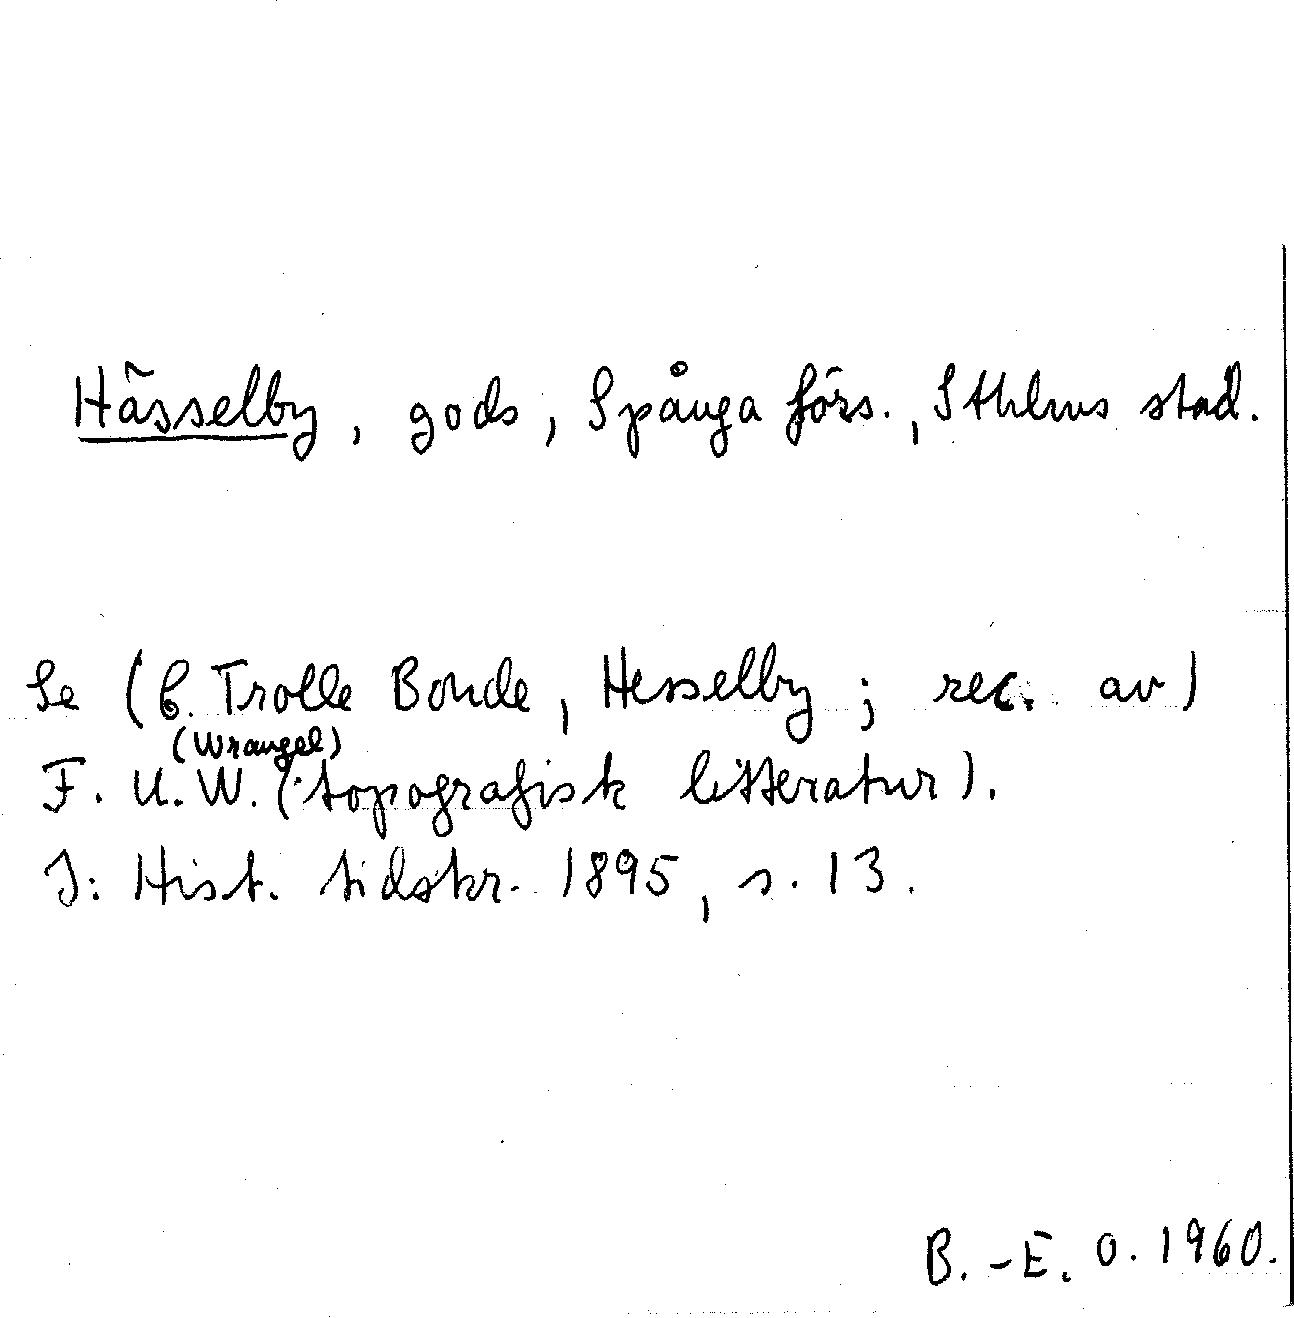 Hässelby, gods, Spånga förs., Sthlms stad.
Se (C. Trolle Bonde, Hesselby; rec. av)
(Wrangel)
F. U. W. (: topografisk litteratur).
I: Hist. tidskr. 1895, s. 13.
B.-E. O. 1960.